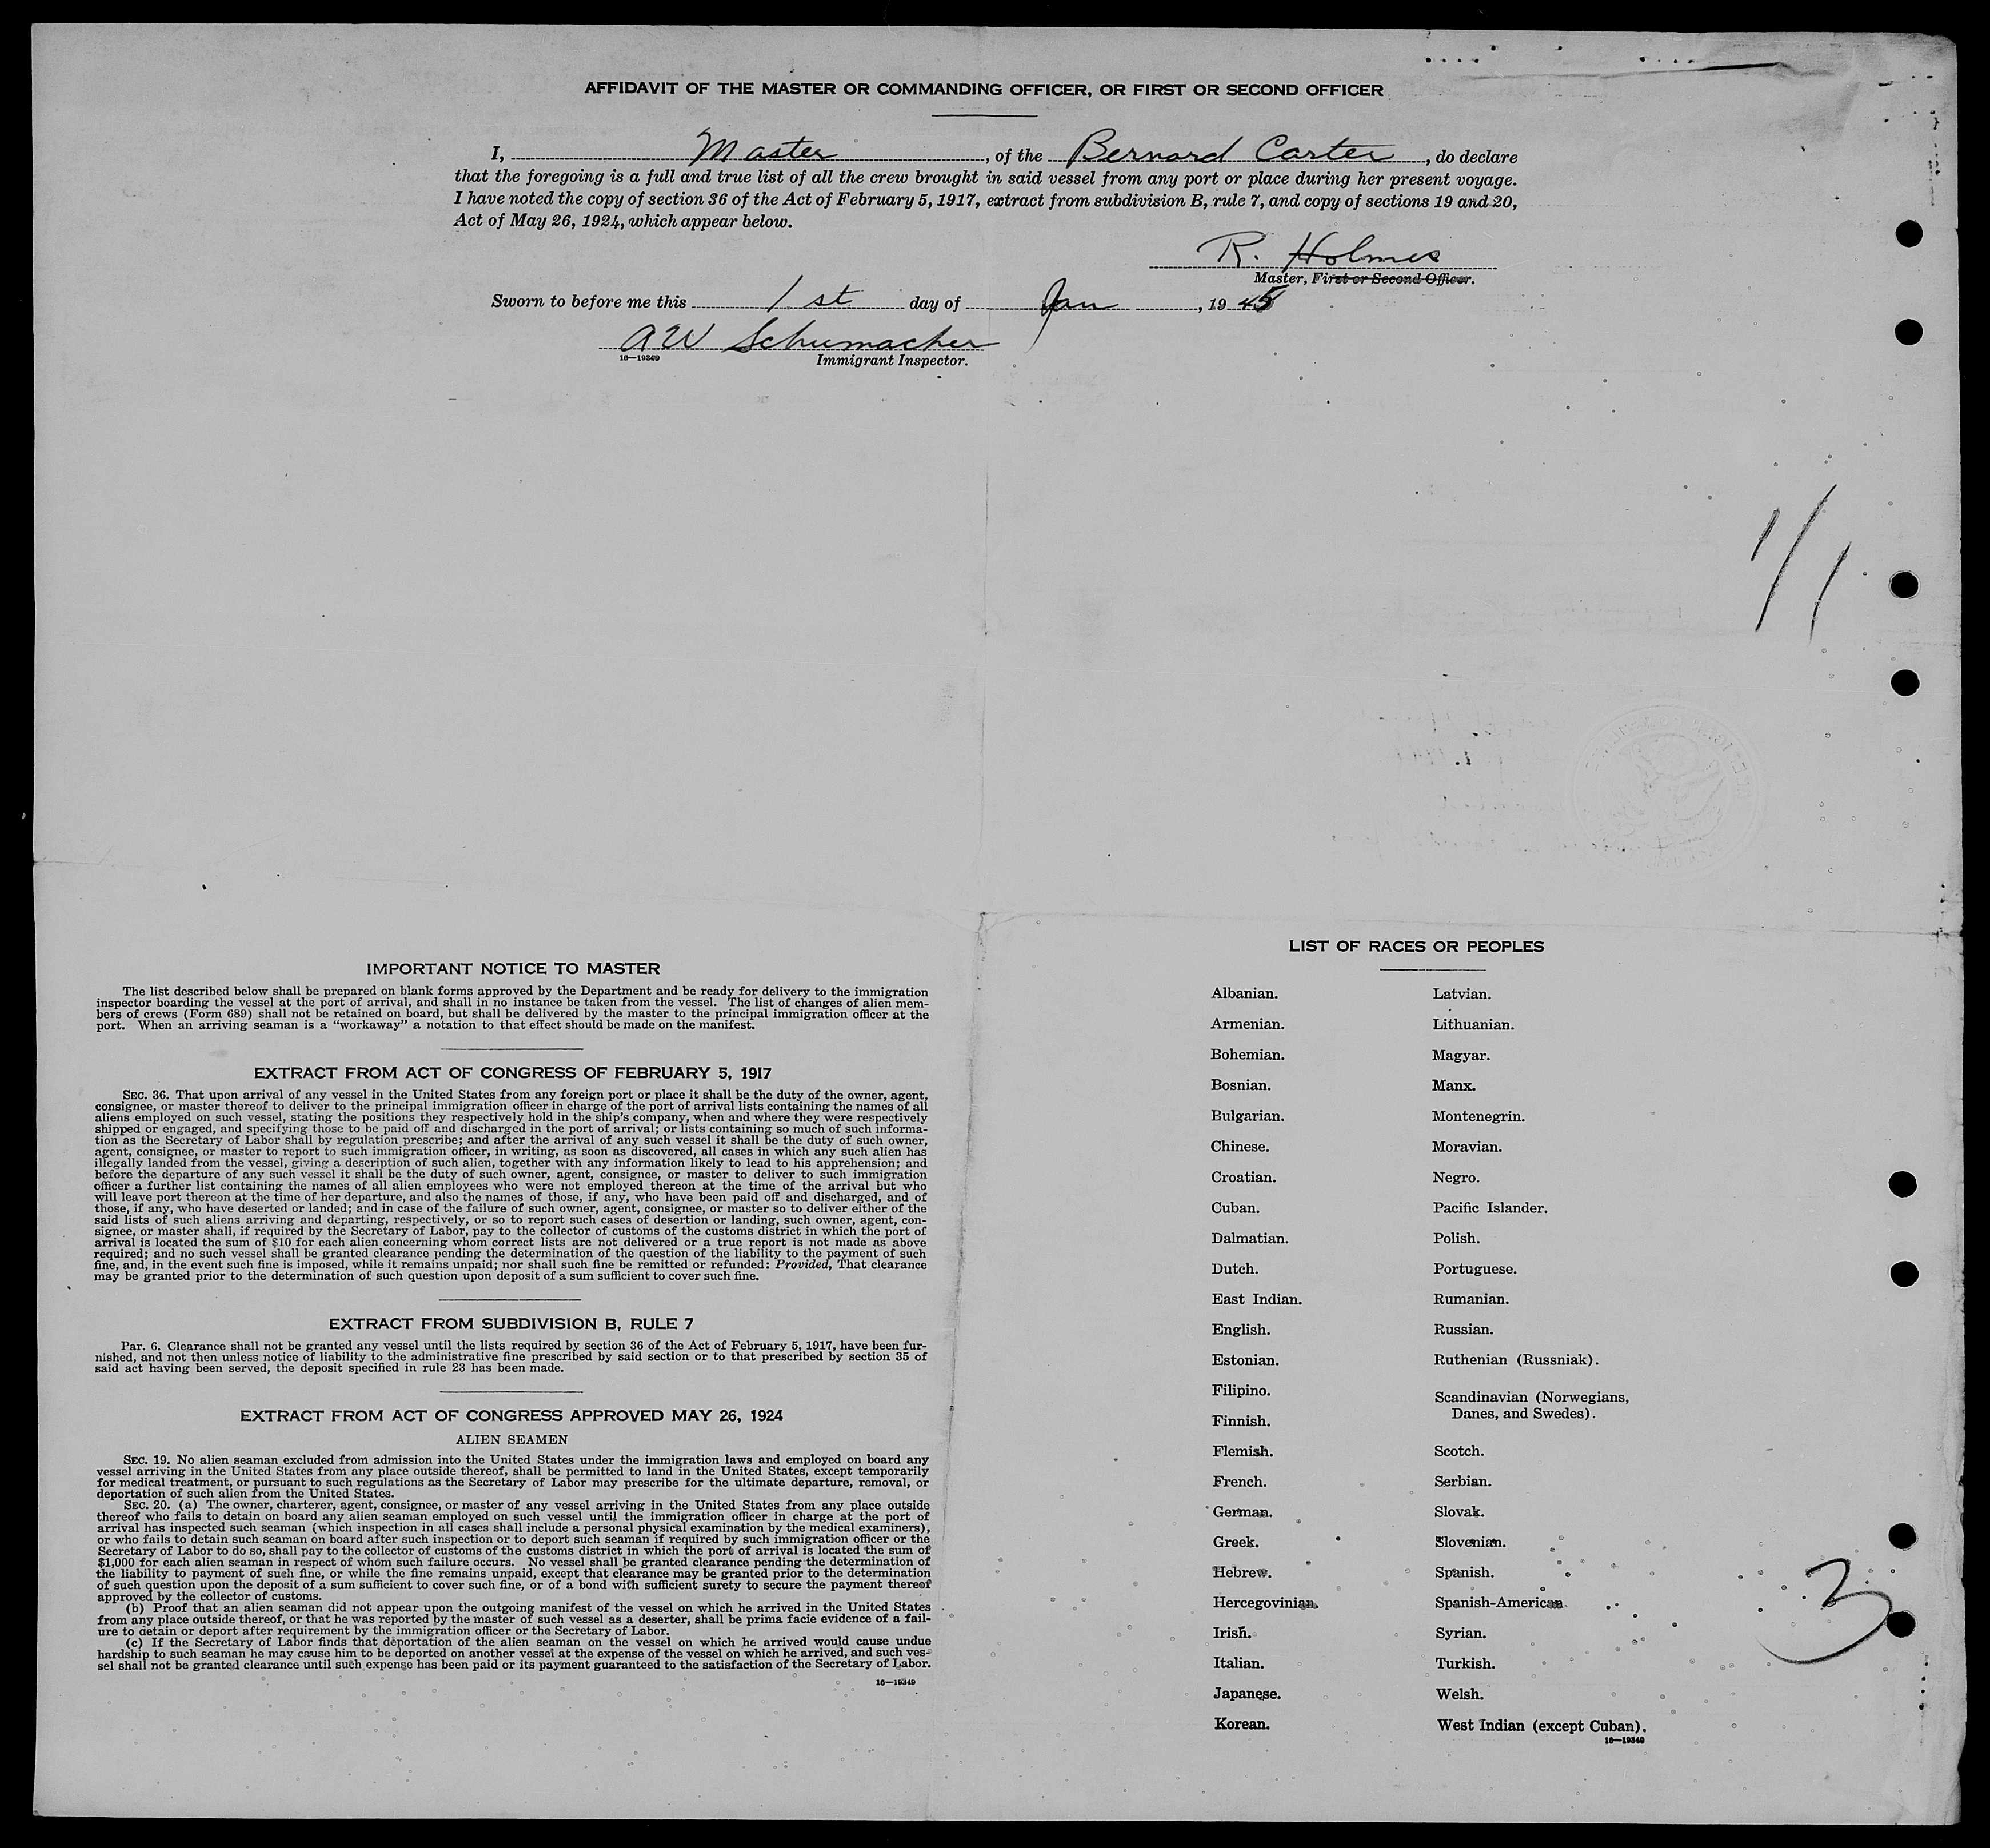 AFFIDAVIT OF THE MASTER OR COMMANDING OFFICER, OR FIRST OR SECOND OFFICER
I, Master, of the Bernard Carter, do declare
that the foregoing is a full and true list of all the crew brought in said vessel from any port or place during her present voyage.
I have noted the copy of section 36 of the Act of February 5, 1917, extract from subdivision B, rule 7, and copy of sections 19 and 20,
Act of May 26, 1924, which appear below.
R. Holmes
Master, First or Second Officer.
Sworn to before me this 1st day of Jan, 1945
AW Schumacher
16—19349
Immigrant Inspector.
1/1
IMPORTANT NOTICE TO MASTER
The list described below shall be prepared on blank forms approved by the Department and be ready for delivery to the immigration
inspector boarding the vessel at the port of arrival, and shall in no instance be taken from the vessel. The list of changes of alien mem-
bers of crews (Form 689) shall not be retained on board, but shall be delivered by the master to the principal immigration officer at the
port. When an arriving seaman is a "workaway" a notation to that effect should be made on the manifest.
EXTRACT FROM ACT OF CONGRESS OF FEBRUARY 5, 1917
SEC. 36. That upon arrival of any vessel in the United States from any foreign port or place it shall be the duty of the owner, agent,
consignee, or master thereof to deliver to the principal immigration officer in charge of the port of arrival lists containing the names of all
aliens employed on such vessel, stating the positions they respectively hold in the ship's company, when and where they were respectively
shipped or engaged, and specifying those to be paid off and discharged in the port of arrival; or lists containing so much of such informa-
tion as the Secretary of Labor shall by regulation prescribe; and after the arrival of any such vessel it shall be the duty of such owner,
agent, consignee, or master to report to such immigration officer, in writing, as soon as discovered, all cases in which any such alien has
illegally landed from the vessel, giving a description of such alien, together with any information likely to lead to his apprehension; and
before the departure of any such vessel it shall be the duty of such owner, agent, consignee, or master to deliver to such immigration
officer a further list containing the names of all alien employees who were not employed thereon at the time of the arrival but who
will leave port thereon at the time of her departure, and also the names of those, if any, who have been paid off and discharged, and of
those, if any, who have deserted or landed; and in case of the failure of such owner, agent, consignee, or master so to deliver either of the
said lists of such aliens arriving and departing, respectively, or so to report such cases of desertion or landing, such owner, agent, con-
signee, or master shall, if required by the Secretary of Labor, pay to the collector of customs of the customs district in which the port of
arrival is located the sum of $10 for each alien concerning whom correct lists are not delivered or a true report is not made as above
required; and no such vessel shall be granted clearance pending the determination of the question of the liability to the payment of such
fine, and, in the event such fine is imposed, while it remains unpaid; nor shall such fine be remitted or refunded: Provided, That clearance
may be granted prior to the determination of such question upon deposit of a sum sufficient to cover such fine.
EXTRACT FROM SUBDIVISION B, RULE 7
Par. 6. Clearance shall not be granted any vessel until the lists required by section 36 of the Act of February 5, 1917, have been fur-
nished, and not then unless notice of liability to the administrative fine prescribed by said section or to that prescribed by section 35 of
said act having been served, the deposit specified in rule 23 has been made.
EXTRACT FROM ACT OF CONGRESS APPROVED MAY 26, 1924
ALIEN SEAMEN
SEC. 19. No alien seaman excluded from admission into the United States under the immigration laws and employed on board any
vessel arriving in the United States from any place outside thereof, shall be permitted to land in the United States, except temporarily
for medical treatment, or pursuant to such regulations as the Secretary of Labor may prescribe for the ultimate departure, removal, or
deportation of such alien from the United States.
SEC. 20. (a) The owner, charterer, agent, consignee, or master of any vessel arriving in the United States from any place outside
thereof who fails to detain on board any alien seaman employed on such vessel until the immigration officer in charge at the port of
arrival has inspected such seaman (which inspection in all cases shall include a personal physical examination by the medical examiners),
or who fails to detain such seaman on board after such inspection or to deport such seaman if required by such immigration officer or the
Secretary of Labor to do so, shall pay to the collector of customs of the customs district in which the port of arrival is located the sum of
$1,000 for each alien seaman in respect of whom such failure occurs. No vessel shall be granted clearance pending the determination of
the liability to payment of such fine, or while the fine remains unpaid, except that clearance may be granted prior to the determination
of such question upon the deposit of a sum sufficient to cover such fine, or of a bond with sufficient surety to secure the payment thereof
approved by the collector of customs.
(b) Proof that an alien seaman did not appear upon the outgoing manifest of the vessel on which he arrived in the United States
from any place outside thereof, or that he was reported by the master of such vessel as a deserter, shall be prima facie evidence of a fail-
ure to detain or deport after requirement by the immigration officer or the Secretary of Labor.
(c) If the Secretary of Labor finds that deportation of the alien seaman on the vessel on which he arrived would cause undue
hardship to such seaman he may cause him to be deported on another vessel at the expense of the vessel on which he arrived, and such ves-
sel shall not be granted clearance until such expense has been paid or its payment guaranteed to the satisfaction of the Secretary of Labor.
16—19349
LIST OF RACES OR PEOPLES
Albanian.
Armenian.
Bohemian.
Bosnian.
Bulgarian.
Chinese.
Croatian.
Cuban.
Dalmatian.
Dutch.
East Indian.
English.
Estonian.
Filipino.
Finnish.
Flemish.
French.
German.
Greek.
Hebrew.
Hercegovinian.
Irish.
Italian.
Japanese.
Korean.
Latvian.
Lithuanian.
Magyar.
Manx.
Montenegrin.
Moravian.
Negro.
Pacific Islander.
Polish.
Portuguese.
Rumanian.
Russian.
Ruthenian (Russniak).
Scandinavian (Norwegians,
Danes, and Swedes).
Scotch.
Serbian.
Slovak.
Slovenian.
Spanish.
Spanish-American.
Syrian.
Turkish.
Welsh.
West Indian (except Cuban).
16—19349
3